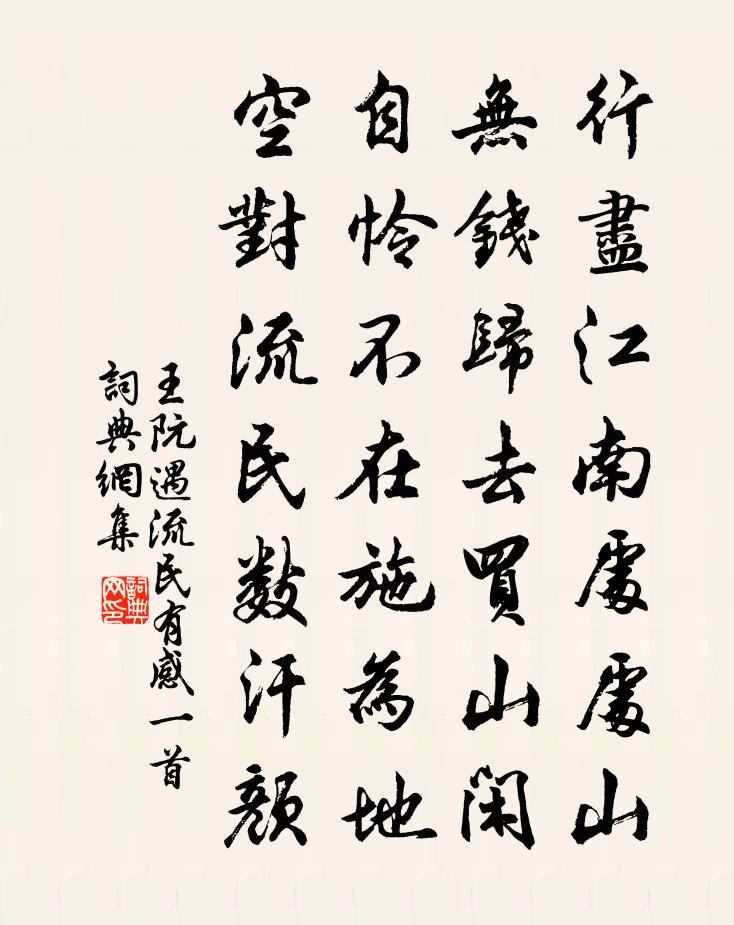 行盡江南處處山
無錢歸去買山閑
自怜不在施為地
空對流民數汗顏
王阮遇流民有感一首
詞典網集
詞典网印